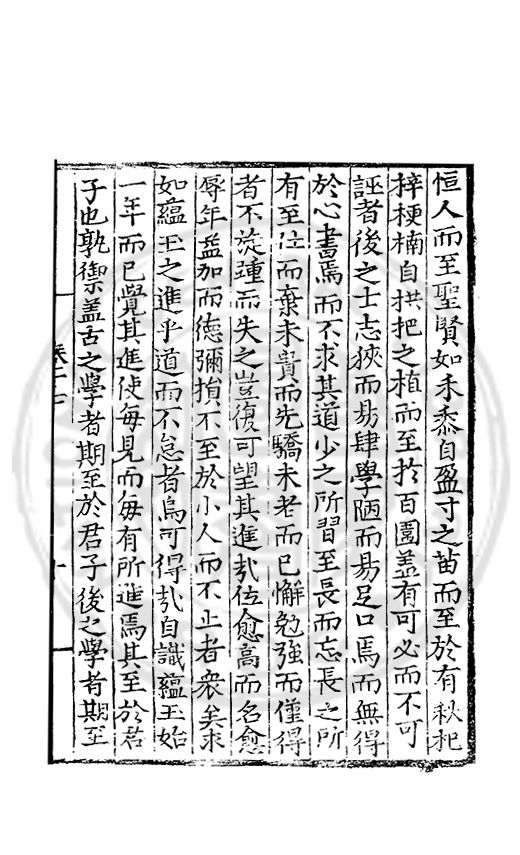 恒人而至聖賢如禾黍自盈寸之苗而至於有秋杞
梓梗楠自拱把之植而至於百圍盖有可必而不可
誣者後之士志狹而易肆學陋而易足口焉而無得
於心書焉而不求其道少之所習至長而忘長之所
有至仕而棄未貴而先驕未老而已懈勉強而僅得
者不旋踵而失之豈復可望其進㢤位愈高而名愈
辱年益加而徳彌損不至於小人而不止者衆矣求
如藴玉之進乎道而不怠者烏可得㢤自識藴玉始
一年而已覺其進使每見而每有所進焉其至於君
子也孰禦盖古之學者期至於君子後之學者期至
卷二十七
十